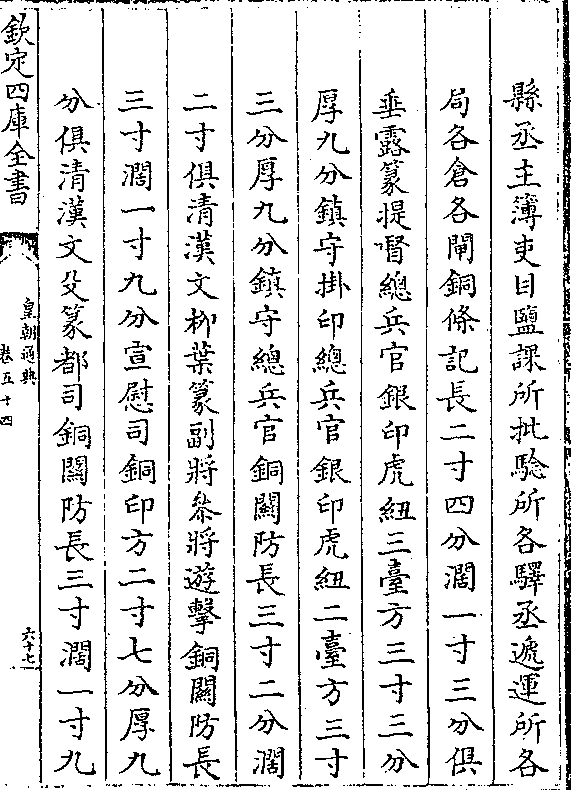 縣丞主簿吏目鹽課所批驗所各驛丞遞運所各
局各倉各閘銅條記長二寸四分濶一寸三分俱
垂露篆提督總兵官銀印虎紐三臺方三寸三分
厚九分鎮守掛印總兵官銀印虎紐二臺方三寸
三分厚九分鎮守總兵官銅關防長三寸二分濶
二寸俱清漢文柳葉篆副將叅將遊擊銅關防長
三寸濶一寸九分宣慰司銅印方二寸七分厚九
分俱清漢文殳篆都司銅關防長三寸濶一寸九
欽定四庫全書
皇朝通典
卷五十四
六十七